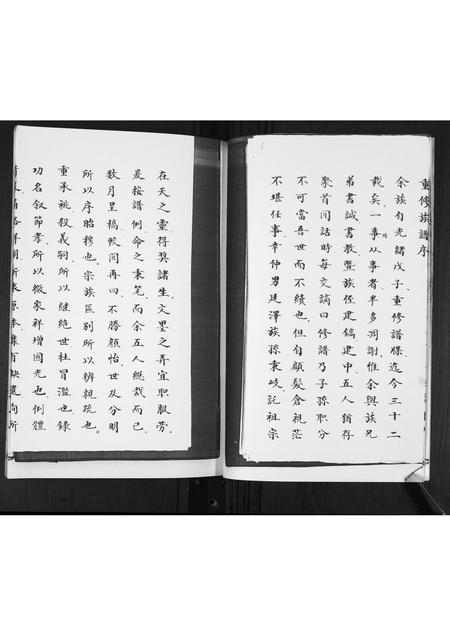 重修族譜序
余族自光緒戊子重修譜牒迄今三十二
載矣一時从事者半多凋謝惟余與族兄
弟書誠書教曁族侄建鎬建中五人猶存
聚首閒話時每交謫曰修譜乃子孫職分
不可當吾世而不續也但自顧髮倉視茫
不堪任事幸仲男廷澤族孫秉岐託祖宗
在天之靈得獎諸生文墨之弄宜職服勞
爰按譜例命之秉筆而余五人總裁而已
数月呈稿較閱再四不勝顧怡世及分明
所以序昭穆也宗族區别所以辨親疏也
重承祧殺義嗣所以継絶世杜冒濫也錄
功名叙節孝所以徵家祥增國光也例體